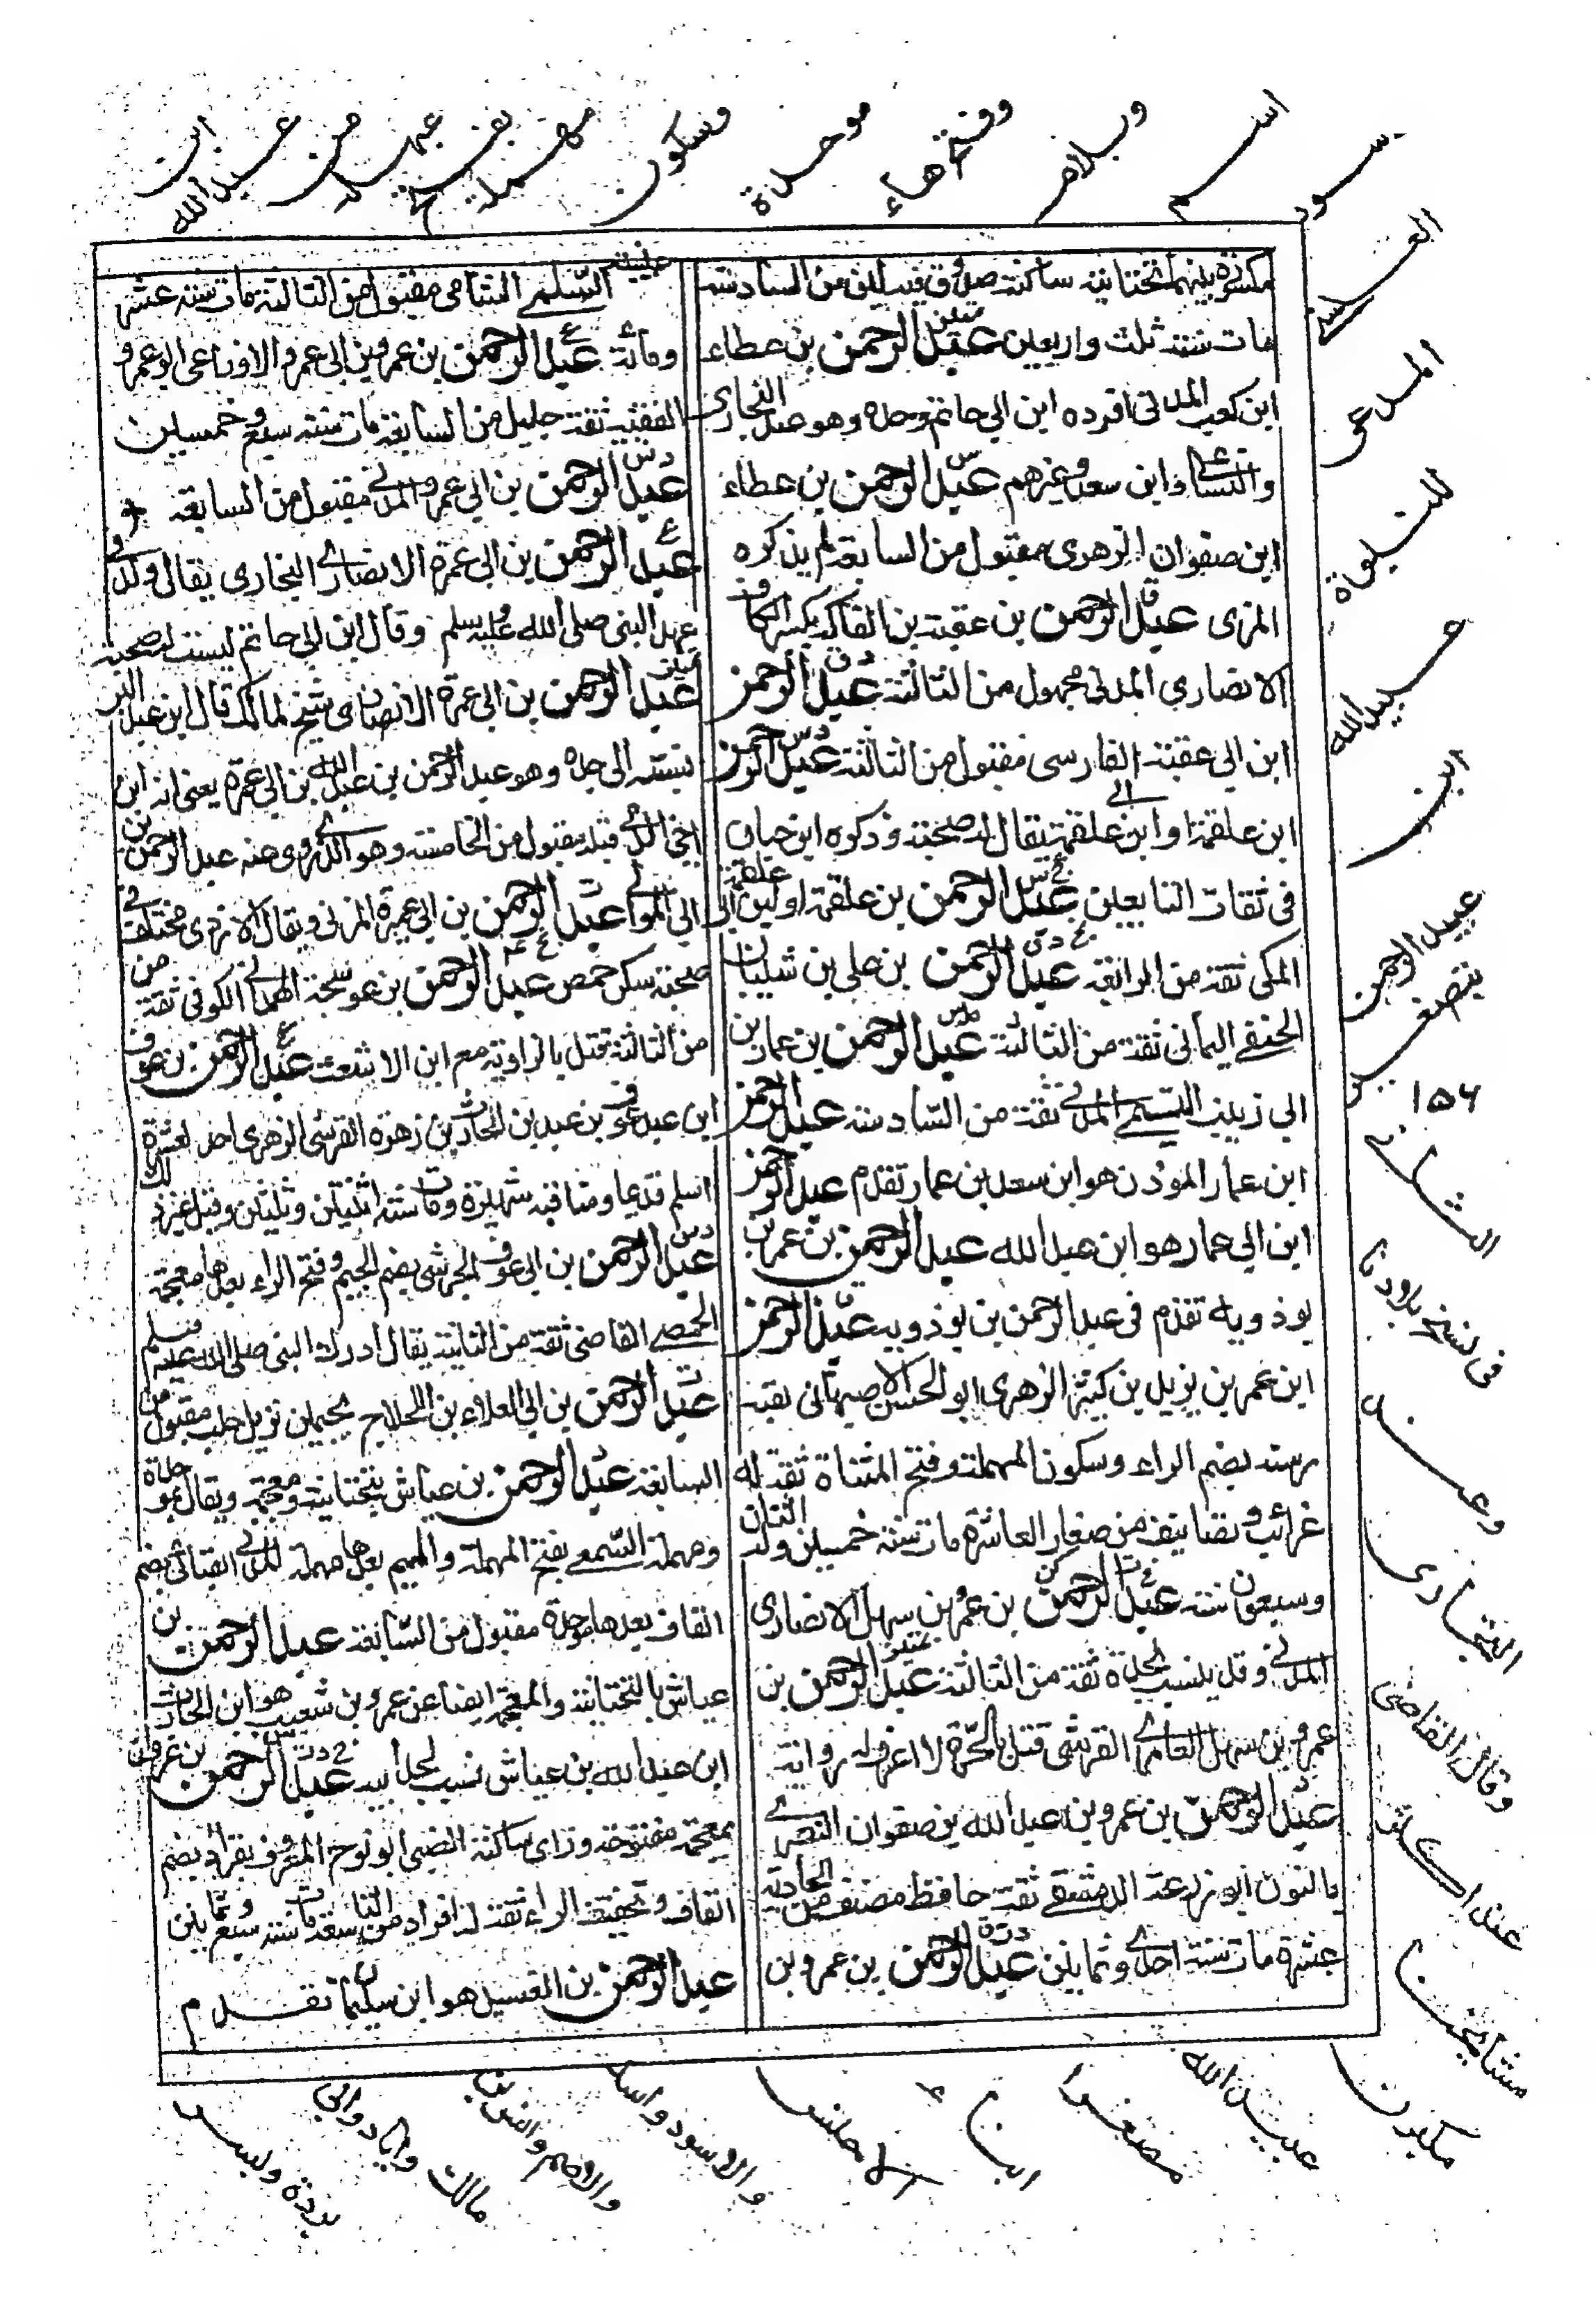 مكسورة بينهما تحتانية ساكنة صدوق فيه لين من السادسة
مات سنة ثلث واربعين عبد الرحمن بن عطاء
ابن كعب المدنى افرده ابن ابي حاتم وحده وهو عند البخارى
والنسائى وابن سعد وغيرهم عبد الرحمن بن عطاء
ابن صفوان الزهرى مقبول من السابعة لم يذكره
المزى عبد الرحمن بن عقبة بن الفاكه بكسر الكاف
الانصارى المدنى مجهول من الثالثة عبد الرحمن
ابن ابي عقبة الفارسى مقبول من الثالثة عبد الرحمن
ابن علقمة او ابن ابي علقمة يقال له صحبة وذكره ابن حبان
فى ثقات التابعين عبد الرحمن بن علقمة او ابن ابي علقمة
المكى ثقة من الرابعة عبد الرحمن بن علي بن شيبان
الحنفى اليمانى ثقة من الثالثة عبد الرحمن بن عمار بن
ابي زينب التيمى المدنى ثقة من السادسة عبد الرحمن
ابن عمار المؤذن هو ابن سعد بن عمار تقدم عبد الرحمن
ابن ابي عمار هو ابن عبد الله عبد الرحمن بن عمر بن
بوذويه تقدم فى عبد الرحمن بن بوذويه عبد الرحمن
ابن عمر بن يزيد بن كثير الزهرى ابو الحسن الاصبهانى لقبه
رسته بضم الراء وسكون المهملة وفتح المثناة ثقة له
غرائب وتصانيف من صغار العاشرة مات سنة خمسين وله اثنتان
وسبعون سنة عبد الرحمن بن عمرو بن سهل الانصارى
المدنى وقد ينسب لجده ثقة من الثالثة عبد الرحمن بن
عمرو بن سهل العامرى القرشى قتل بالحرة لا اعرف له رواية
عبد الرحمن بن عمرو بن عبد الله بن صفوان النصرى
بالنون ابو زرعة الدمشقى ثقة حافظ مصنف من الحادية
عشرة مات سنة احدى وثمانين عبد الرحمن بن عمرو بن
عبسة السلمى الشامى مقبول من الثالثة مات سنة عشر
ومائة عبد الرحمن بن عمرو بن ابي عمرو الاوزاعى ابو عمرو
الفقيه ثقة جليل من السابعة مات سنة سبع وخمسين
عبد الرحمن بن ابي عمرو المدنى مقبول من السابعة
عبد الرحمن بن ابي عمرة الانصارى النجارى يقال ولد فى
عهد النبى صلى الله عليه وسلم وقال ابن ابي حاتم ليست له صحبة
عبد الرحمن بن ابي عمرة الانصارى شيخ لمالك قال ابن عبد البر
نسبه الى جده وهو عبد الرحمن بن عبد الله بن ابي عمرة يعنى انه ابن
اخى الذى قبله مقبول من الخامسة وهو الذى روى عنه عبد الرحمن بن
ابي الموالى عبد الرحمن بن ابي عميرة المزنى ويقال الازدى مختلف فى
صحبته سكن حمص عبد الرحمن بن عوسجة الهمدانى الكوفى ثقة من
من الثالثة قتل بالزاوية مع ابن الاشعث عبد الرحمن بن عوف
ابن عبد عوف بن عبد بن الحارث بن زهرة القرشى الزهرى احد العشرة
اسلم قديما ومناقبه شهيرة ومات سنة اثنتين وثلثين وقيل غير ذلك
عبد الرحمن بن ابي عوف الجرشى بضم الجيم وفتح الراء بعدها معجمة
الحمصى القاضى ثقة من الثانية يقال ادرك النبى صلى الله عليه وسلم
عبد الرحمن بن ابي العلاء بن اللجلاج بجيمين نزيل حلب مقبول من
السابعة عبد الرحمن بن عياش بتحتانية ومعجمة ويقال بموحدة
ومهملة السمعى بفتح المهملة والميم بعدها مهملة المدنى القبائى بضم
القاف بعدها موحدة مقبول من السابعة عبد الرحمن بن
عياش بالتحتانية والمعجمة ايضا عن عمرو بن شعيب هو ابن الحارث
ابن عبد الله بن عياش نسب لجد ابيه عبد الرحمن بن غزوان
بمعجمة مفتوحة وزاى ساكنة الضبى ابو نوح المعروف بقراد بضم
القاف وتخفيف الراء ثقة له افراد من التاسعة مات سنة سبع وثمانين
عبد الرحمن بن الغسيل هو ابن سليمان تقدم
ابن
عبيد الله
من
عبدله
بفتح
مهملة
وسكون
موحدة
وفتح هاء
وبلام
اسم
المدعى
عبيد الله
ابن
عبيد الرحمن
بتصغير
١٥٦
وعند
البخارى
وقال القاضى
مكبرن
عبيد الله
مصغرا
ابن
والاسود
مالك
بردة وليس